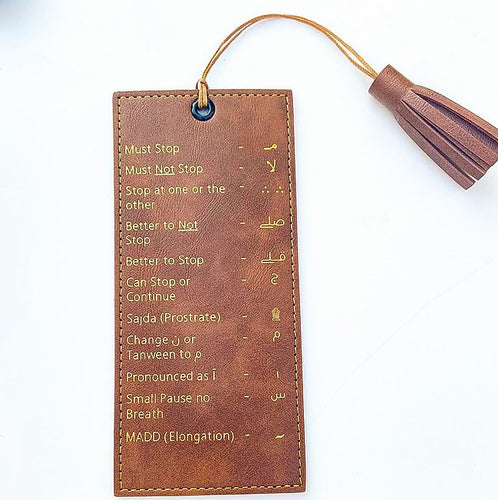 Must Stop - مـ
Must Not Stop - لا
Stop at one or the - ∴ ∴
other
Better to Not - صلے
Stop
Better to Stop - قلے
Can Stop or - ج
Continue
Sajda (Prostrate) - ۩
Change ن or - م
Tanween to م
Pronounced as آ - ٰ
Small Pause no - س
Breath
MADD (Elongation) - ~